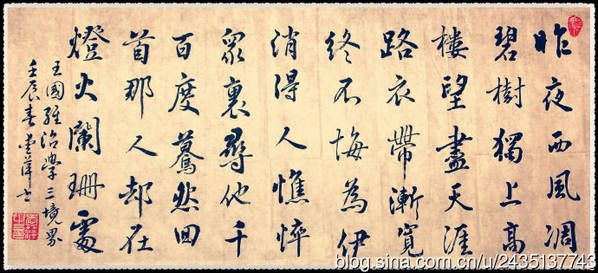 昨夜西風凋
碧樹獨上高
樓望盡天涯
路衣帶漸寬
終不悔為伊
消得人憔悴
眾裏尋他千
百度驀然回
首那人却在
燈火闌珊處
王國維治學三境界
壬辰春
blog.sina.com.cn/u/2435137743